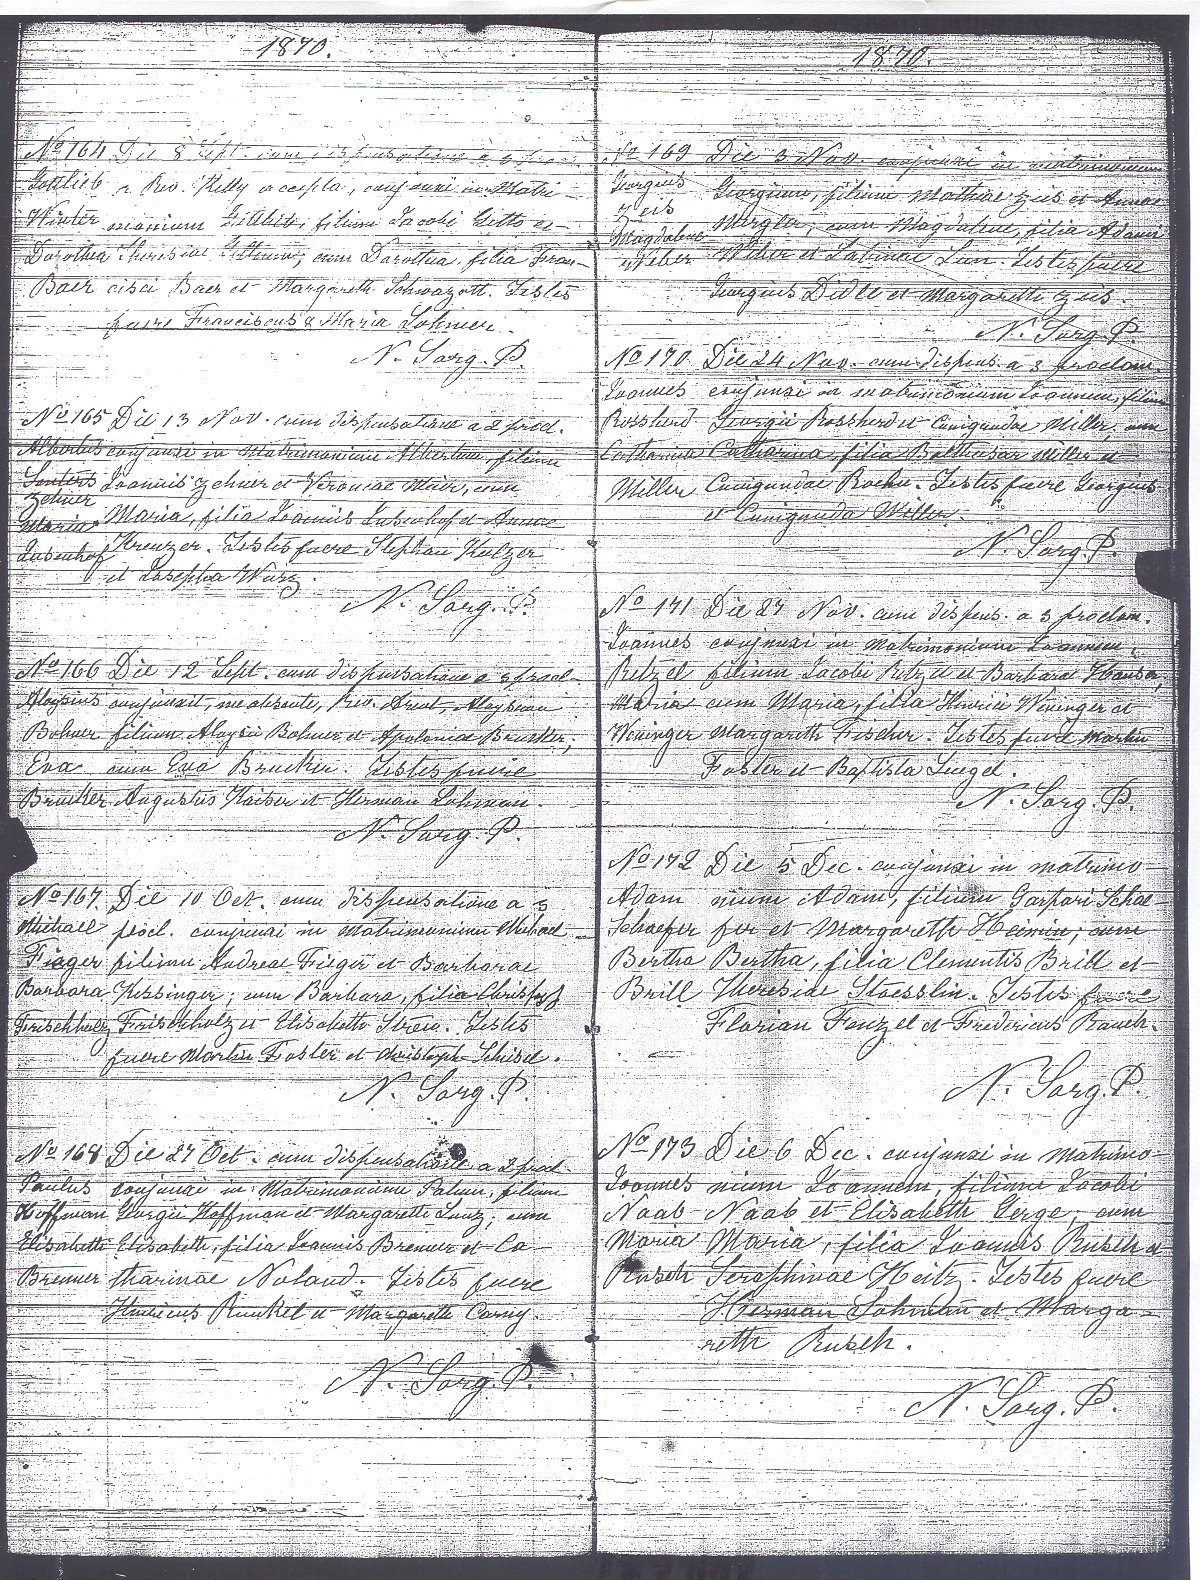 1870.
No 164 Die 8 Sept. cum dispensatione a 3 proc.
Gottlieb a Rev. Kelly accepta, conjunxi in Matri-
Winter monium filium Jacobi et
Dorothea Theresiae cum Dorothea, filia Fran-
Baer cisci Baer et Margareth Schwazott. Testes
fuere Franciscus & Maria Lohmer.
N. Sorg. P.
No 165 Die 13 Nov. cum dispensatione a 2 procl.
Albertus conjunxi in Matrimonium Albertum, filium
Zehner Joannis Zehner et Veronicae Mair, cum
Maria Maria, filia Joannis Lusenhof et Annae
Lusenhof Kreuzer. Testes fuere Stephan Kulzer
et Josepha Wurz.
N. Sorg. P.
No 166 Die 12 Sept. cum dispensatione a 3 procl-
Aloysius conjunxit, me absente, Rev. Arent, Aloysium
Bohner filium Aloysii Bohner et Apoloniae Brucker,
Eva cum Eva Brucker. Testes fuere
Brucker Augustus Kaiser et Herman Lohman.
N. Sorg. P.
No 167. Die 10 Oct. cum dispensatione a 3
Michael procl. conjunxi in Matrimonium Michael
Fieger filium Andreae Fieger et Barbarae
Barbara Kessinger; cum Barbara, filia Christof
Frischholz Frischholz et Elisabeth Streu. Testes
fuere Martin Foster et Christoph Schisel.
N. Sorg. P.
No 168 Die 27 Oct. cum dispensatione a 2 procl-
Paulus conjunxi in Matrimonium Palum, filium
Hoffman Georgii Hoffman et Margareth Lunz; cum
Elisabeth Elisabeth, filia Joannis Brenner et Ca-
Brenner tharinae Noland. Testes fuere
Henricus Runkel et Margareth Carny.
N. Sorg. P.
1870.
No 169 Die 3 Nov. conjunxi in matrimonium
Georgius Georgium, filium Mathiae Zeis et Annae
Zeis Mergler, cum Magdalena, filia Adami
Magdalena Weber et Sabinae Lun. Testes fuere
Weber Georgius Didle et Margareth Zeis.
N. Sorg. P.
No 170. Die 24 Nov. cum dispens. a 3 proclam.
Joannes conjunxi in matrimonium Joannem, filium
Rossherd Georgii Rossherd et Cunigundae Miller, cum
Catharina Catharina, filia Balthasar Miller et
Miller Cunigundae Rochu. Testes fuere Georgius
et Cunigunda Miller.
N. Sorg. P.
No 171 Die 27 Nov. cum dispens. a 3 proclam.
Joannes conjunxi in matrimonium Joannem,
Retzel filium Jacobi Retzel et Barbarae Hauser,
Maria cum Maria, filia Henrici Weninger et
Weninger Margareth Fischer. Testes fuere Martin
Foster et Baptista Luegel.
N. Sorg. P.
No 172 Die 5 Dec. conjunxi in matrimo-
Adam nium Adam, filium Gaspari Schae-
Schaefer fer et Margareth Heinin; cum
Bertha Bertha, filia Clementis Brill et
Brill Theresiae Stoesslin. Testes fuere
Florian Fenzel et Fredericus Rauch.
N. Sorg. P.
No 173 Die 6 Dec. conjunxi in matrimo-
Joannes nium Joannem, filium Jacobi
Naab Naab et Elisabeth Gerge, cum
Maria Maria, filia Joannis Rusch et
Rusch Seraphinae Heitz. Testes fuere
Herman Lohman et Marga-
reth Rusch.
N. Sorg. P.